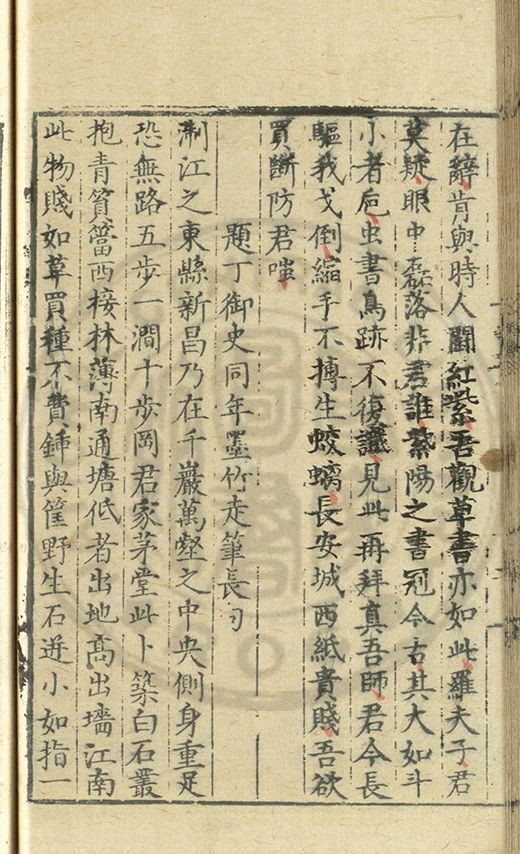 在辭肯與時人鬭紅紫吾觀草書亦如此羅夫子君
莫疑眼中磊落非君誰紫陽之書冠今古其大如斗
小者卮虫書鳥跡不復譏見此再拜真吾師君今長
驅我戈倒縮手不摶生蛟螭長安城西紙貴賤吾欲
買斷防君嗤
題丁御史同年墨竹走筆長句
浙江之東縣新昌乃在千巖萬壑之中央側身重足
恐無路五步一澗十步岡君家茅堂此卜築白石叢
抱青篔簹西接林薄南通塘低者出地高出墻江南
此物賤如草買種不費錘與筐野生石迸小如指一